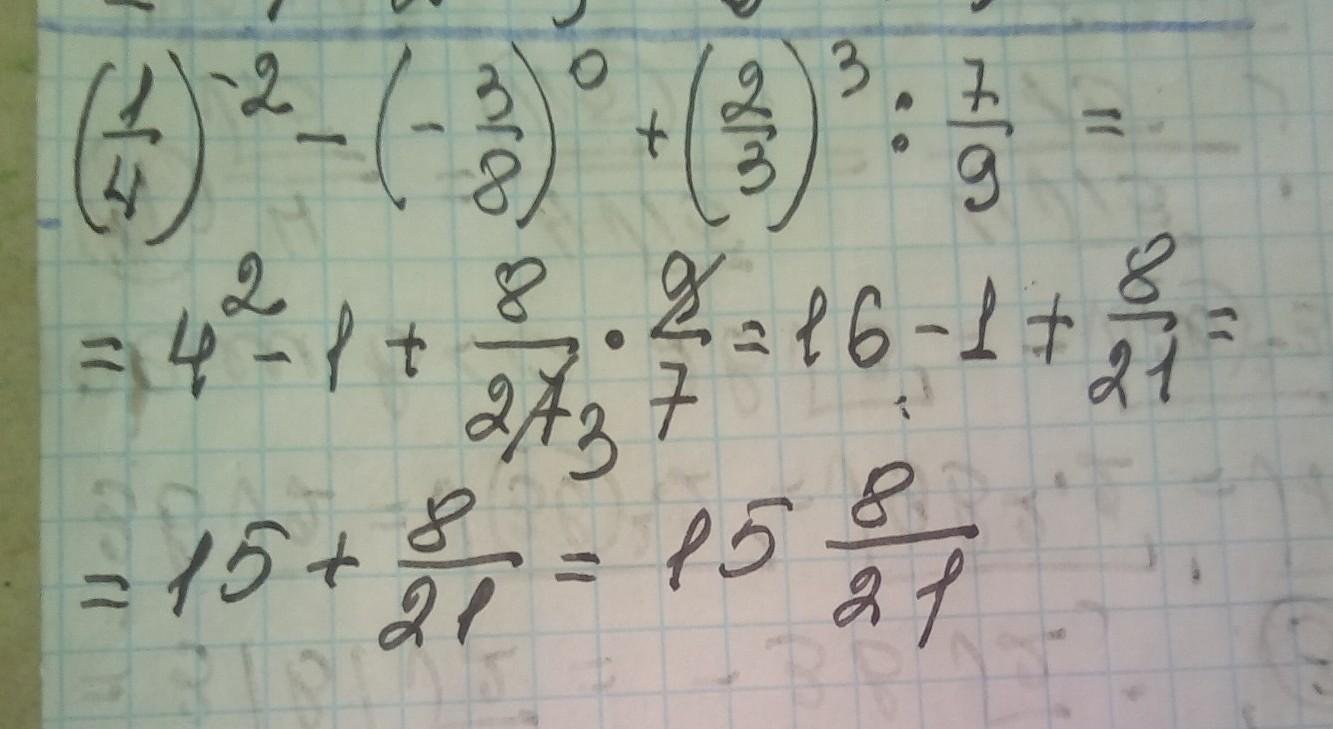 (1/4)^-2 - (-3/8)^0 + (2/3)^3 : 7/9 =
= 4^2 - 1 + 8/27 3 · 9/7 = 16 - 1 + 8/21 =
= 15 + 8/21 = 15 8/21